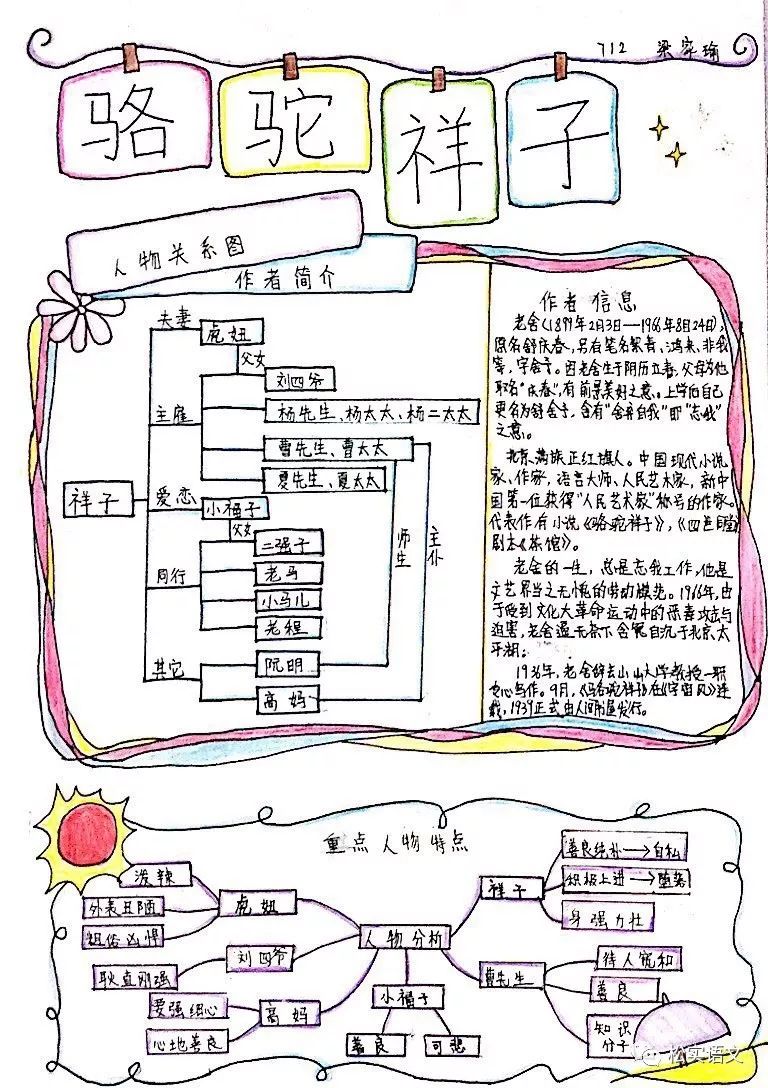 712 梁家瑜
骆驼祥子
人物关系图
作者简介
夫妻 虎妞
父女
刘四爷
主雇
杨先生、杨太太、杨二太太
曹先生、曹太太
夏先生、夏太太
祥子
爱恋 小福子
父女
二强子
同行 老马
小马儿
老程
师生
主仆
其它 阮明
高妈
作者信息
老舍(1899年2月3日—1966年8月24日),
原名舒庆春,另有笔名絜青、鸿来、非我
等,字舍予。因老舍生于阴历立春,父母为他
取名“庆春”,有前景美好之意。上学后自己
更名为舒舍予,含有“舍弃自我”即“忘我”
之意。
北京满族正红旗人。中国现代小说
家、作家,语言大师、人民艺术家,新中
国第一位获得“人民艺术家”称号的作家。
代表作有小说《骆驼祥子》,《四世同堂》
剧本《茶馆》。
老舍的一生,总是忘我工作,他是
文艺界当之无愧的劳动模范。1966年,由
于受到文化大革命运动中的恶毒攻击与
迫害,老舍逼无奈下含冤自沉于北京太
平湖。
1936年,老舍辞去山山大学教授一职
专心写作。9月,《骆驼祥子》在《宇宙风》连
载,1939正式由人间书屋发行。
重点人物特点
人物分析
虎妞
泼辣
外表丑陋
粗俗凶悍
刘四爷
耿直刚强
高妈
要强细心
心地善良
小福子
善良
可悲
祥子
善良纯朴→自私
积极上进→堕落
身强力壮
曹先生
待人宽和
善良
知识
分子
松实语文